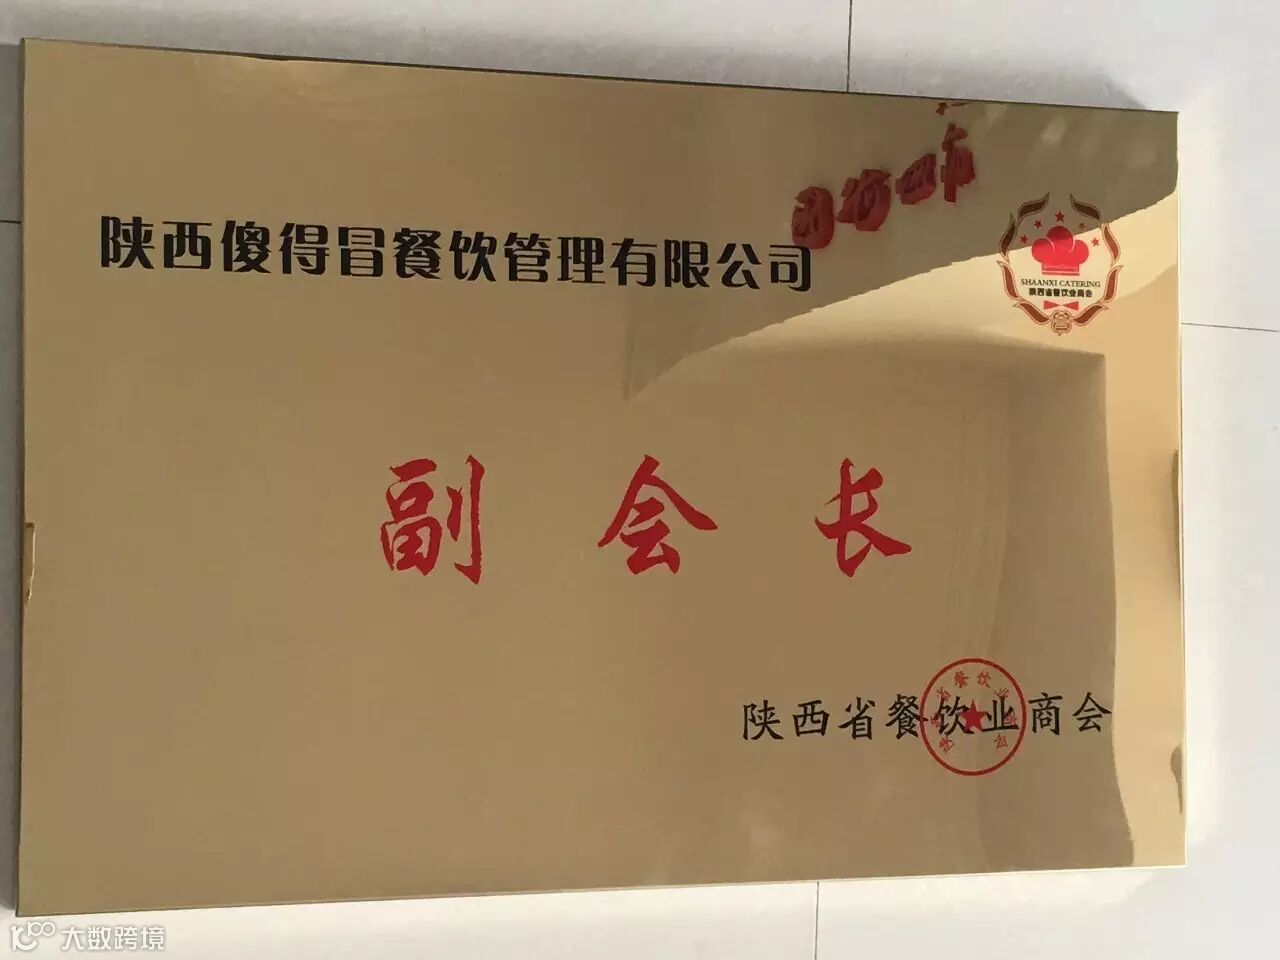 陕西傻得冒餐饮管理有限公司
SHAANXI CATERING
陕西省餐饮业商会
副会长
陕西省餐饮业商会
大数跨境